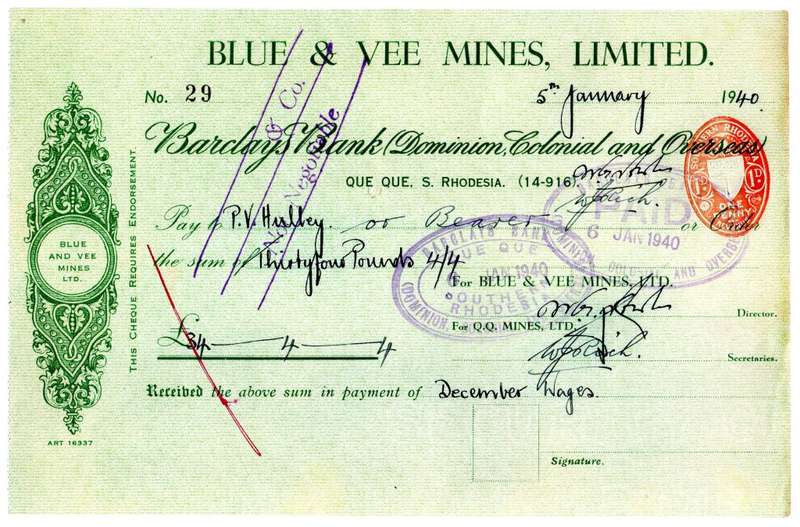 BLUE & VEE MINES, LIMITED.
No. 29
5th January 1940.
& Co.
Not Negotiable
Barclays Bank (Dominion, Colonial and Overseas)
QUE QUE, S. RHODESIA. (14-916)
SOUTHERN RHODESIA
1D 1D
ONE PENNY
Pay to P.V. Hulley. or Bearer or Order
PAID
6 JAN 1940
the sum of Thirtyfour Pounds 4/4
BARCLAYS BANK
QUE QUE
JAN 1940
SOUTHERN
RHODESIA
(DOMINION,
COLONIAL AND OVERSEAS)
For BLUE & VEE MINES, LTD.
Director.
For Q.Q. MINES, LTD.
Secretaries.
£34 — 4 — 4
Received the above sum in payment of December Wages.
Signature.
THIS CHEQUE REQUIRES ENDORSEMENT.
BLUE
AND VEE
MINES
LTD.
ART 16337